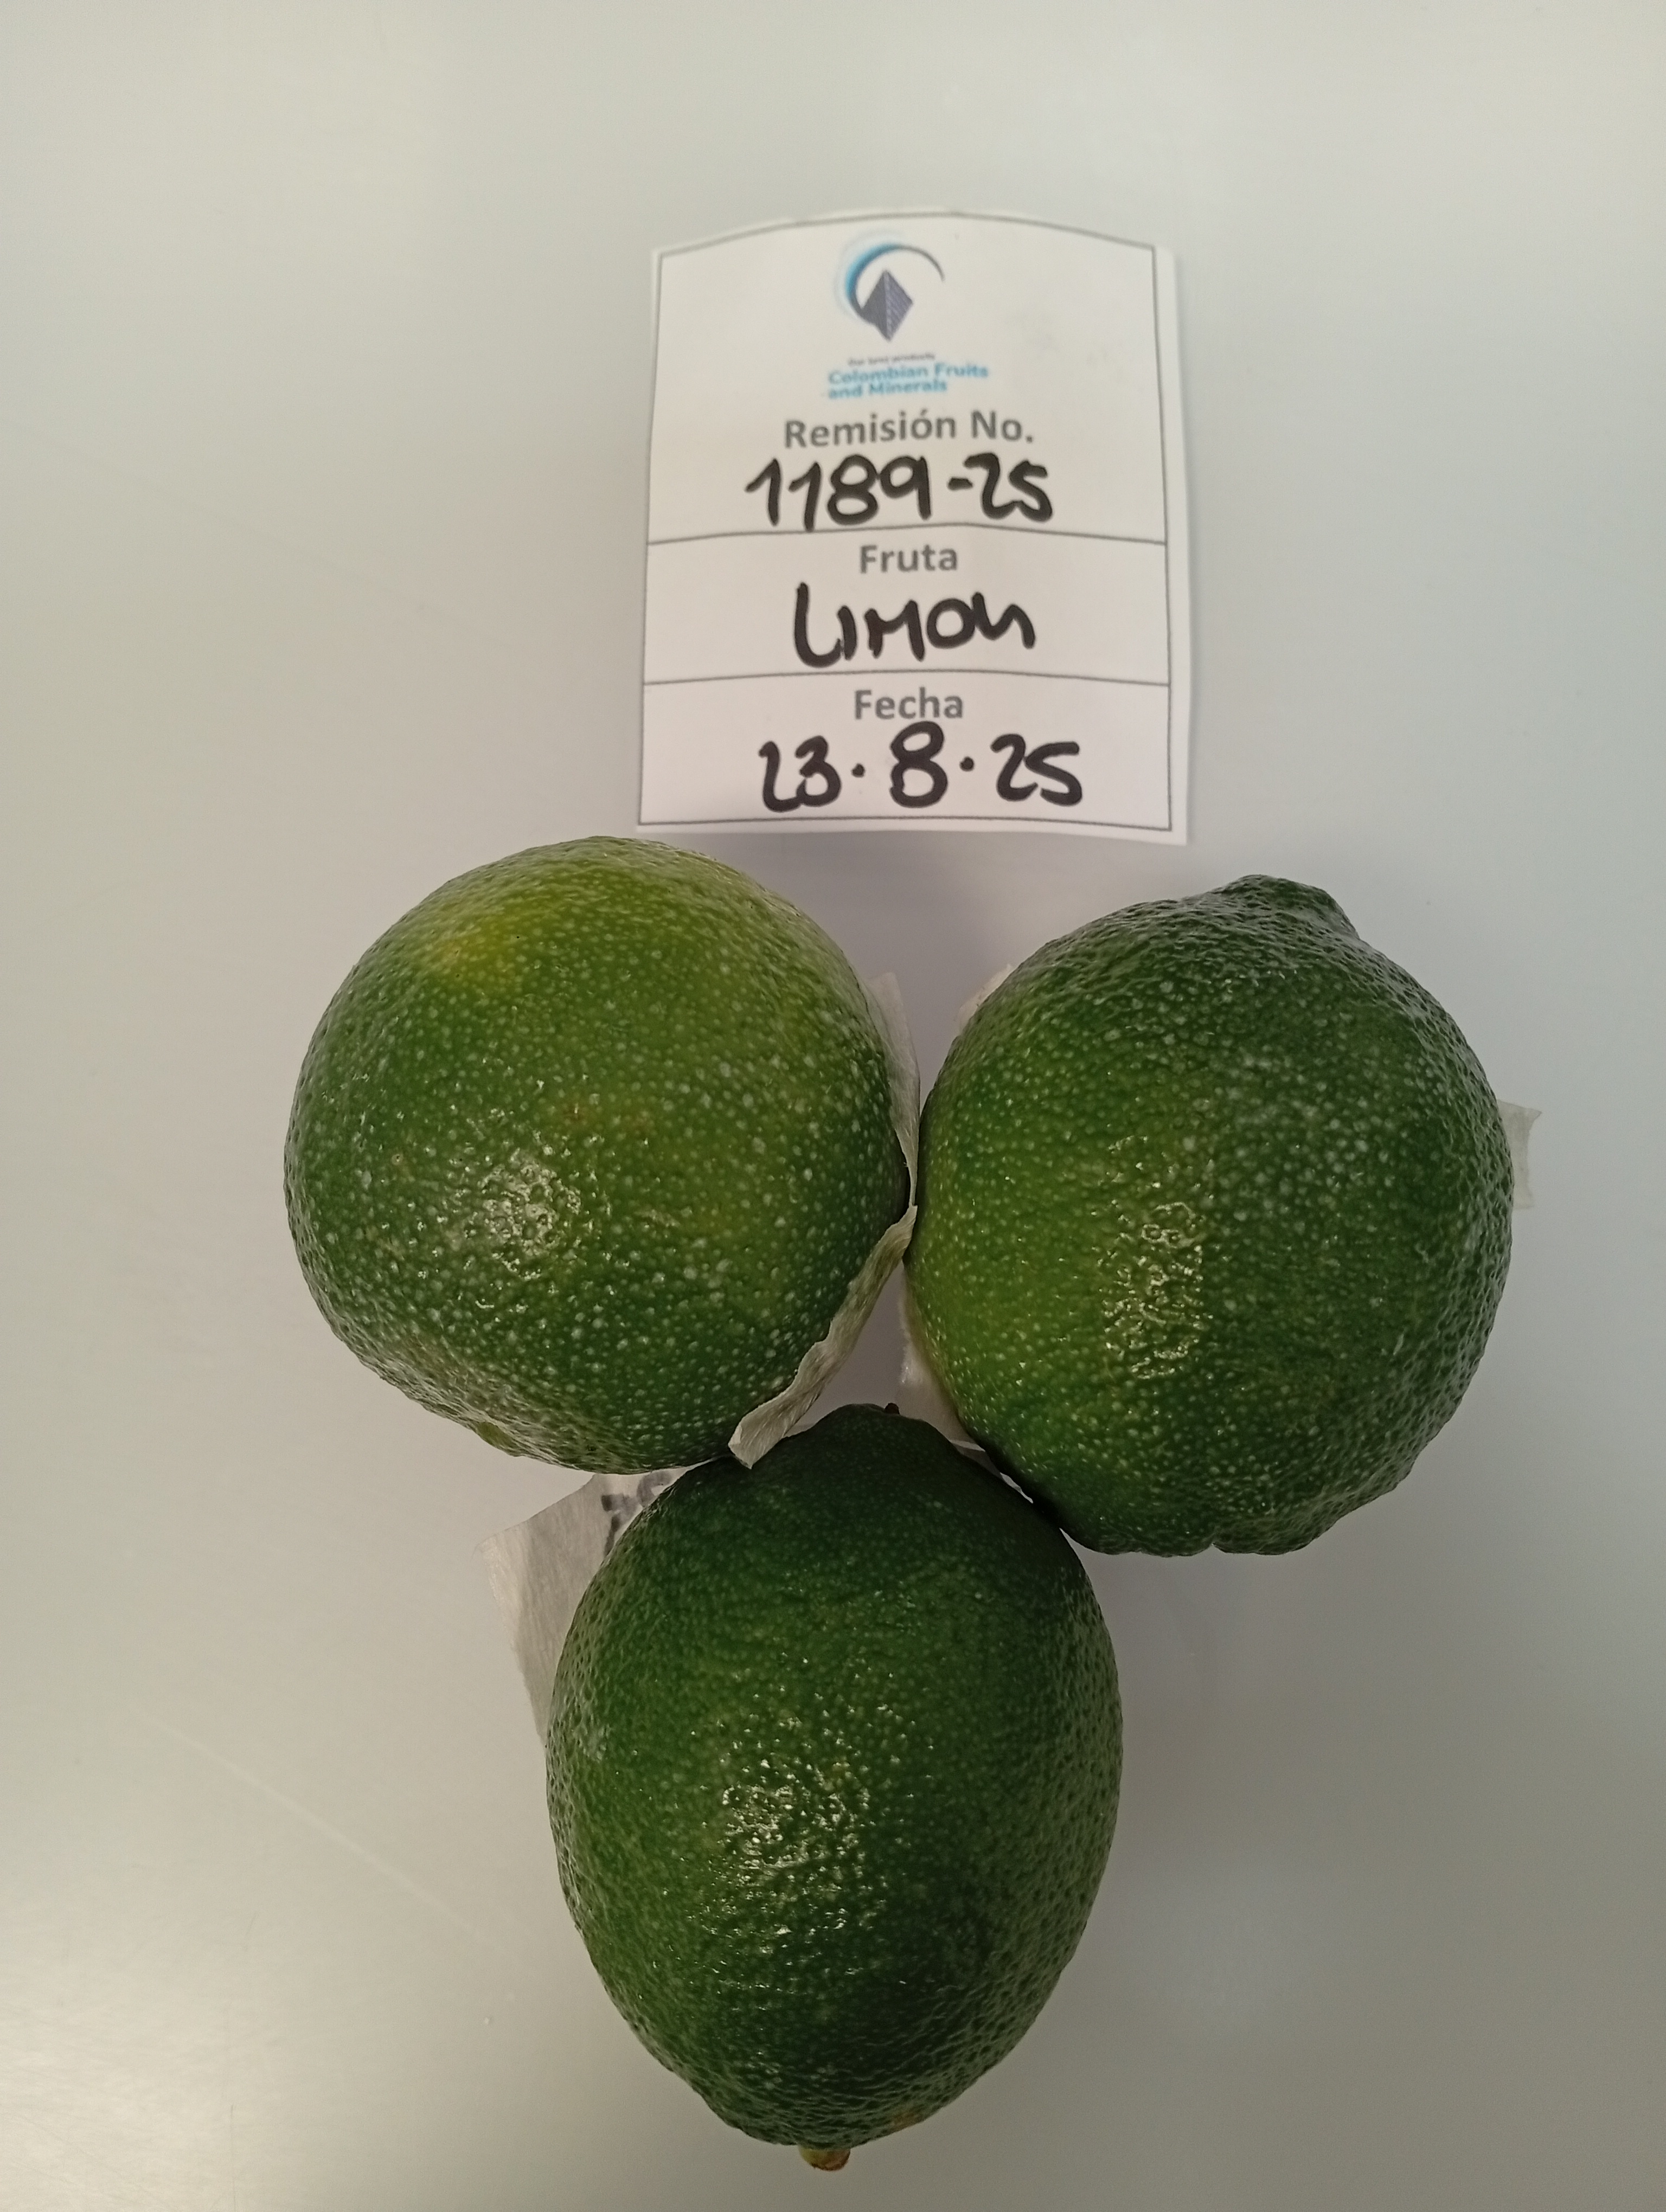 Our best products
Colombian Fruits
and Minerals
Remisión No.
1189-25
Fruta
LIMON
Fecha
23·8·25